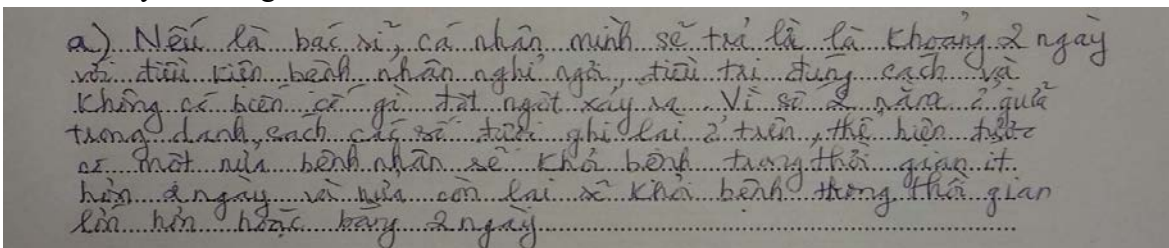 a) Nếu là bác sĩ, cá nhân mình sẽ trả lời là khoảng 2 ngày
với điều kiện bệnh nhân nghỉ ngơi, điều trị đúng cách và
không có biến cố gì đột ngột xảy ra. Vì số 2 nằm ở giữa
trong danh sách các số được ghi lại ở trên, thể hiện được
có một nửa bệnh nhân sẽ khỏi bệnh trong thời gian ít
hơn 2 ngày và nửa còn lại sẽ khỏi bệnh trong thời gian
lớn hơn hoặc bằng 2 ngày